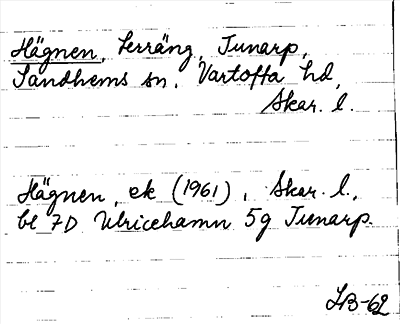 Hägnen, terräng, Tunarp,
Sandhems sn, Vartofta hd,
Skar. l.
Hägnen, ek (1961), Skar. l.,
bl 7D Ulricehamn 5g Tunarp.
IB-62